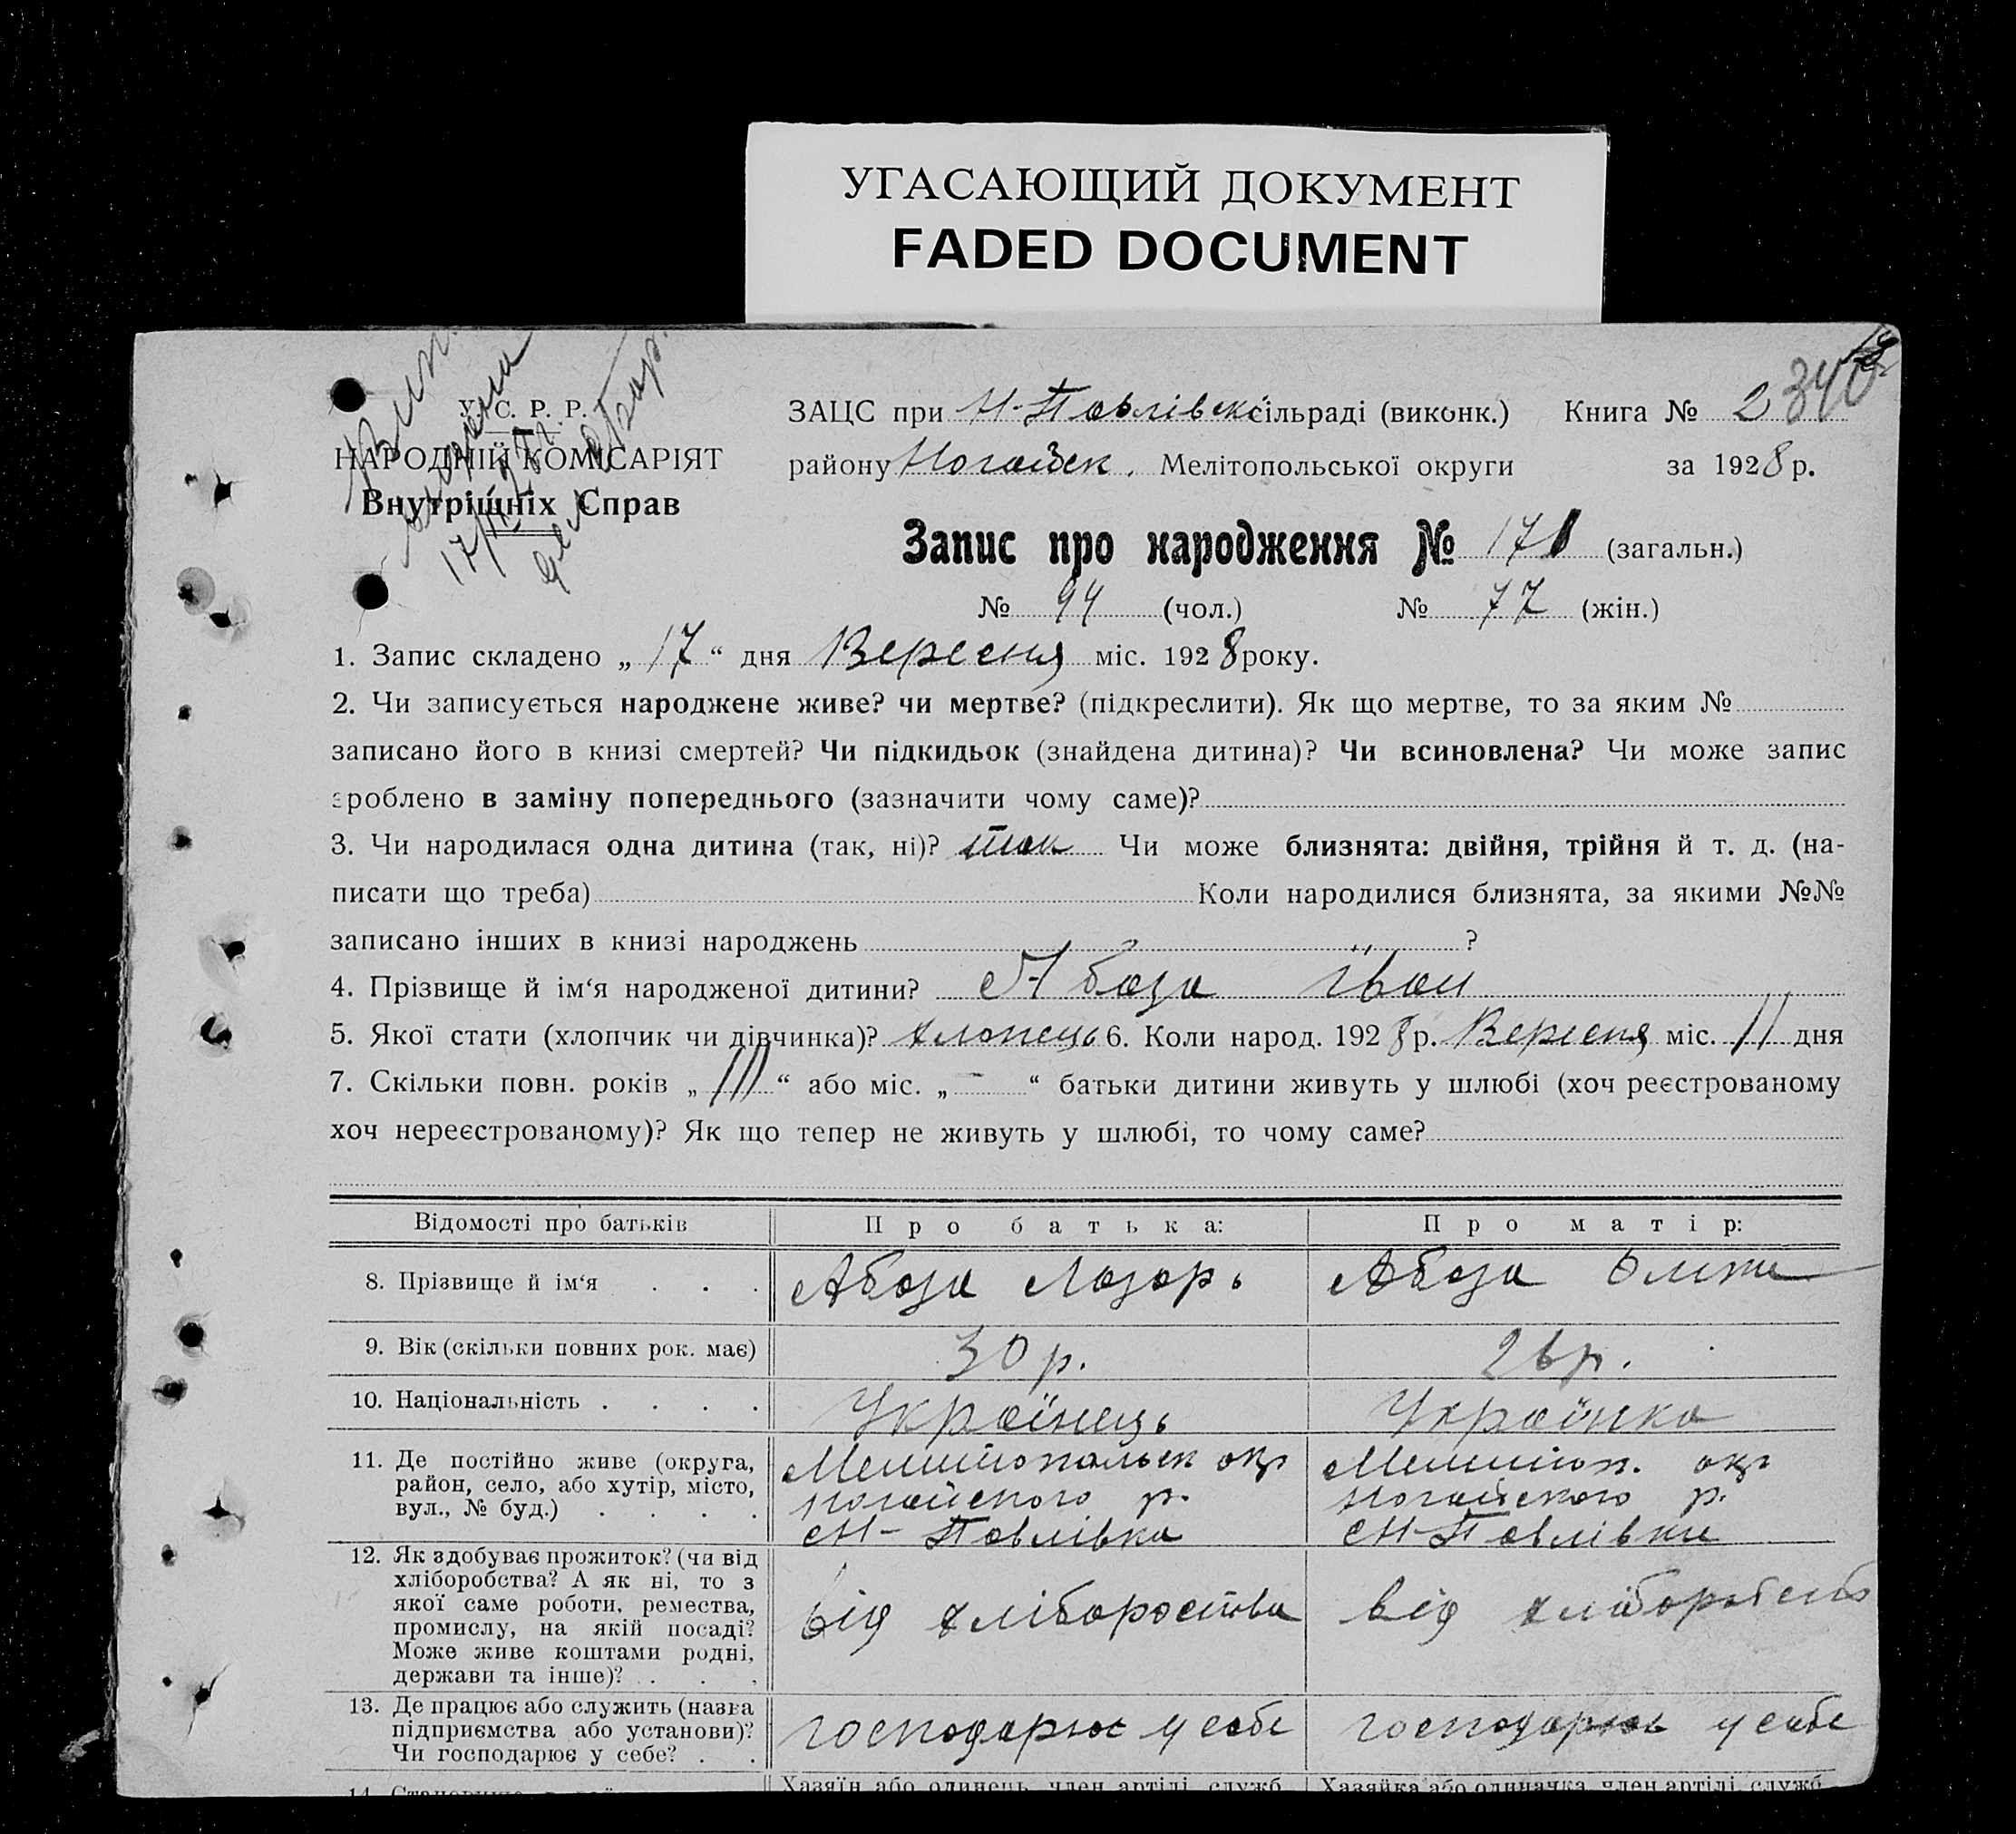 УГАСАЮЩИЙ ДОКУМЕНТ
FADED DOCUMENT
340
У. С. Р. Р.
НАРОДНІЙ КОМІСАРІЯТ
Внутрішніх Справ
ЗАЦС при Н-Павлівскі сільраді (виконк.) Книга № 2
району Ногайск. Мелітопольської округи за 1928 р.
Запис про народження № 171 (загальн.)
№ 94 (чол.) № 77 (жін.)
1. Запис складено „ 17 “ дня Вересня міс. 1928 року.
2. Чи записується народжене живе? чи мертве? (підкреслити). Як що мертве, то за яким №
записано його в книзі смертей? Чи підкидьок (знайдена дитина)? Чи всиновлена? Чи може запис
зроблено в заміну попереднього (зазначити чому саме)?
3. Чи народилася одна дитина (так, ні)? так Чи може близнята: двійня, трійня й т. д. (на-
писати що треба) Коли народилися близнята, за якими №№
записано інших в книзі народжень ?
4. Прізвище й ім‘я народженої дитини? Абоза Іван
5. Якої стати (хлопчик чи дівчинка)? хлопець 6. Коли народ. 1928 р. Вересня міс. 11 дня
7. Скільки повн. років „ III “ або міс. „ — “ батьки дитини живуть у шлюбі (хоч реєстрованому
хоч нереєстрованому)? Як що тепер не живуть у шлюбі, то чому саме?
Відомості про батьків Про батька: Про матір:
8. Прізвище й ім‘я . . . Абоза Лазарь Абоза
9. Вік (скільки повних рок. має) 30 р. 26 р.
10. Національність . . . . Українець Українка
11. Де постійно живе (округа,
район, село, або хутір, місто,
вул., № буд.) . . . .
Мелитопольск окр
Ногайского р.
Н-Павлівка
Мелитоп. окр
Ногайского р.
Н-Павлівки
12. Як здобуває прожиток? (чи від
хліборобства? А як ні, то з
якої саме роботи, ремества,
промислу, на якій посаді?
Може живе коштами родні,
держави та інше)? . . .
від хлібороства
від
13. Де працює або служить (назва
підприємства або установи)?
Чи господарює у себе? . .
господарює у себе
господарює у себе
Хазяїн або одинець, член артілі, служб.
Хазяйка або одиначка, член артілі, служб.